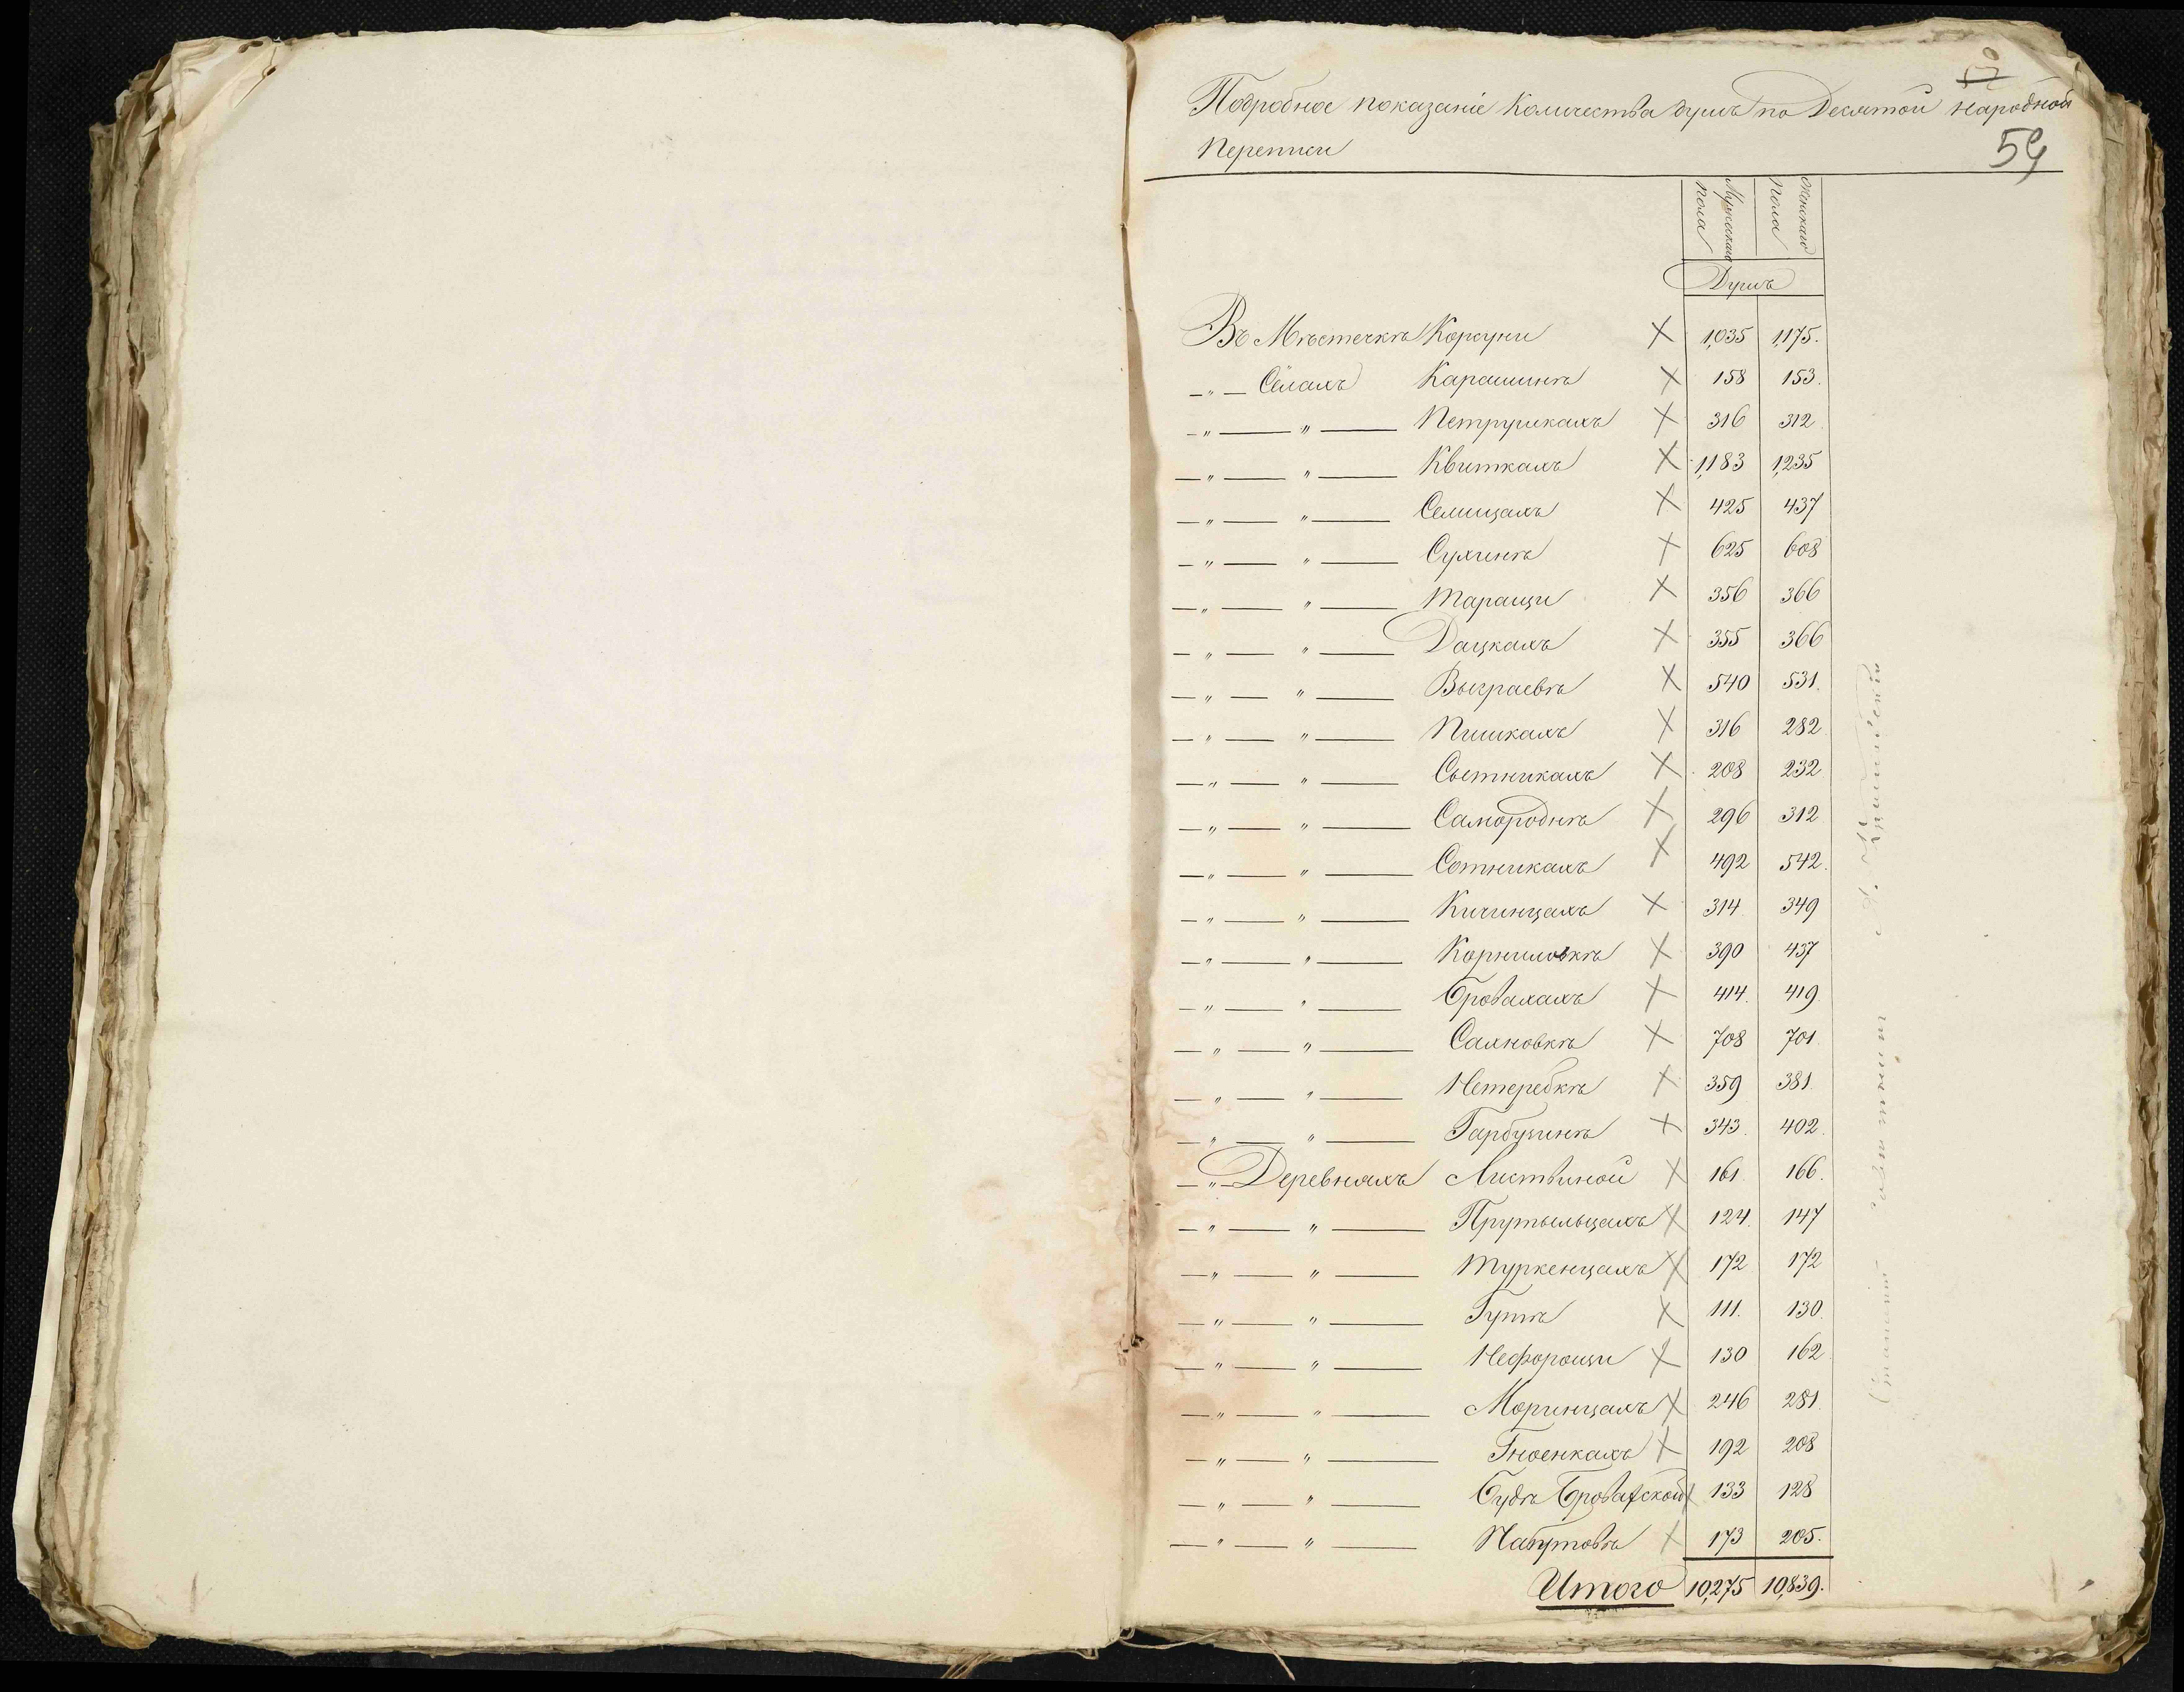 Подробное показаніе Количества душъ по Десятой народной
переписи
59
Мужескаго пола
Женскаго пола
Душъ
Въ Мѣстечкѣ Корсуни × 1,035 1,175.
—„— Сёлахъ Карашинѣ × 158 153.
—„— „ — Петрушкахъ × 316 312.
—„— „ — Квиткахъ × 1,183 1,235
—„— „ — Селищахъ × 425 437
—„— „ — Сухинѣ × 625 608
—„— „ — Таращи × 356 366
—„— „ — Дацкахъ × 355 366
—„— „ — Выграевѣ × 540 531.
—„— „ — Пишкахъ × 316 282
—„— „ — Сытникахъ × 208 232
—„— „ — Самороднѣ × 296 312
—„— „ — Сотникахъ × 492 542.
—„— „ — Кичинцахъ × 314 349
—„— „ — Корниловкѣ × 390 437
—„— „ — Бровахахъ × 414. 419.
—„— „ — Сахновкѣ × 708 701.
—„— „ — Нетеребкѣ × 359 381.
—„— „ — Гарбузинѣ × 343. 402.
—„— Деревняхъ Листвиной × 161. 166.
—„— „ — Прутыльцахъ × 124. 147
—„— „ — Туркенцахъ × 172 172
—„— „ — Гутѣ × 111. 130.
—„— „ — Нефорощи × 130 162
—„— „ — Моринцахъ × 246 281.
—„— „ — Гноенкахъ × 192 208
—„— „ — Будѣ Бровахской × 133 128
—„— „ — Набутовѣ × 173 205.
Итого 10,275 10,839.